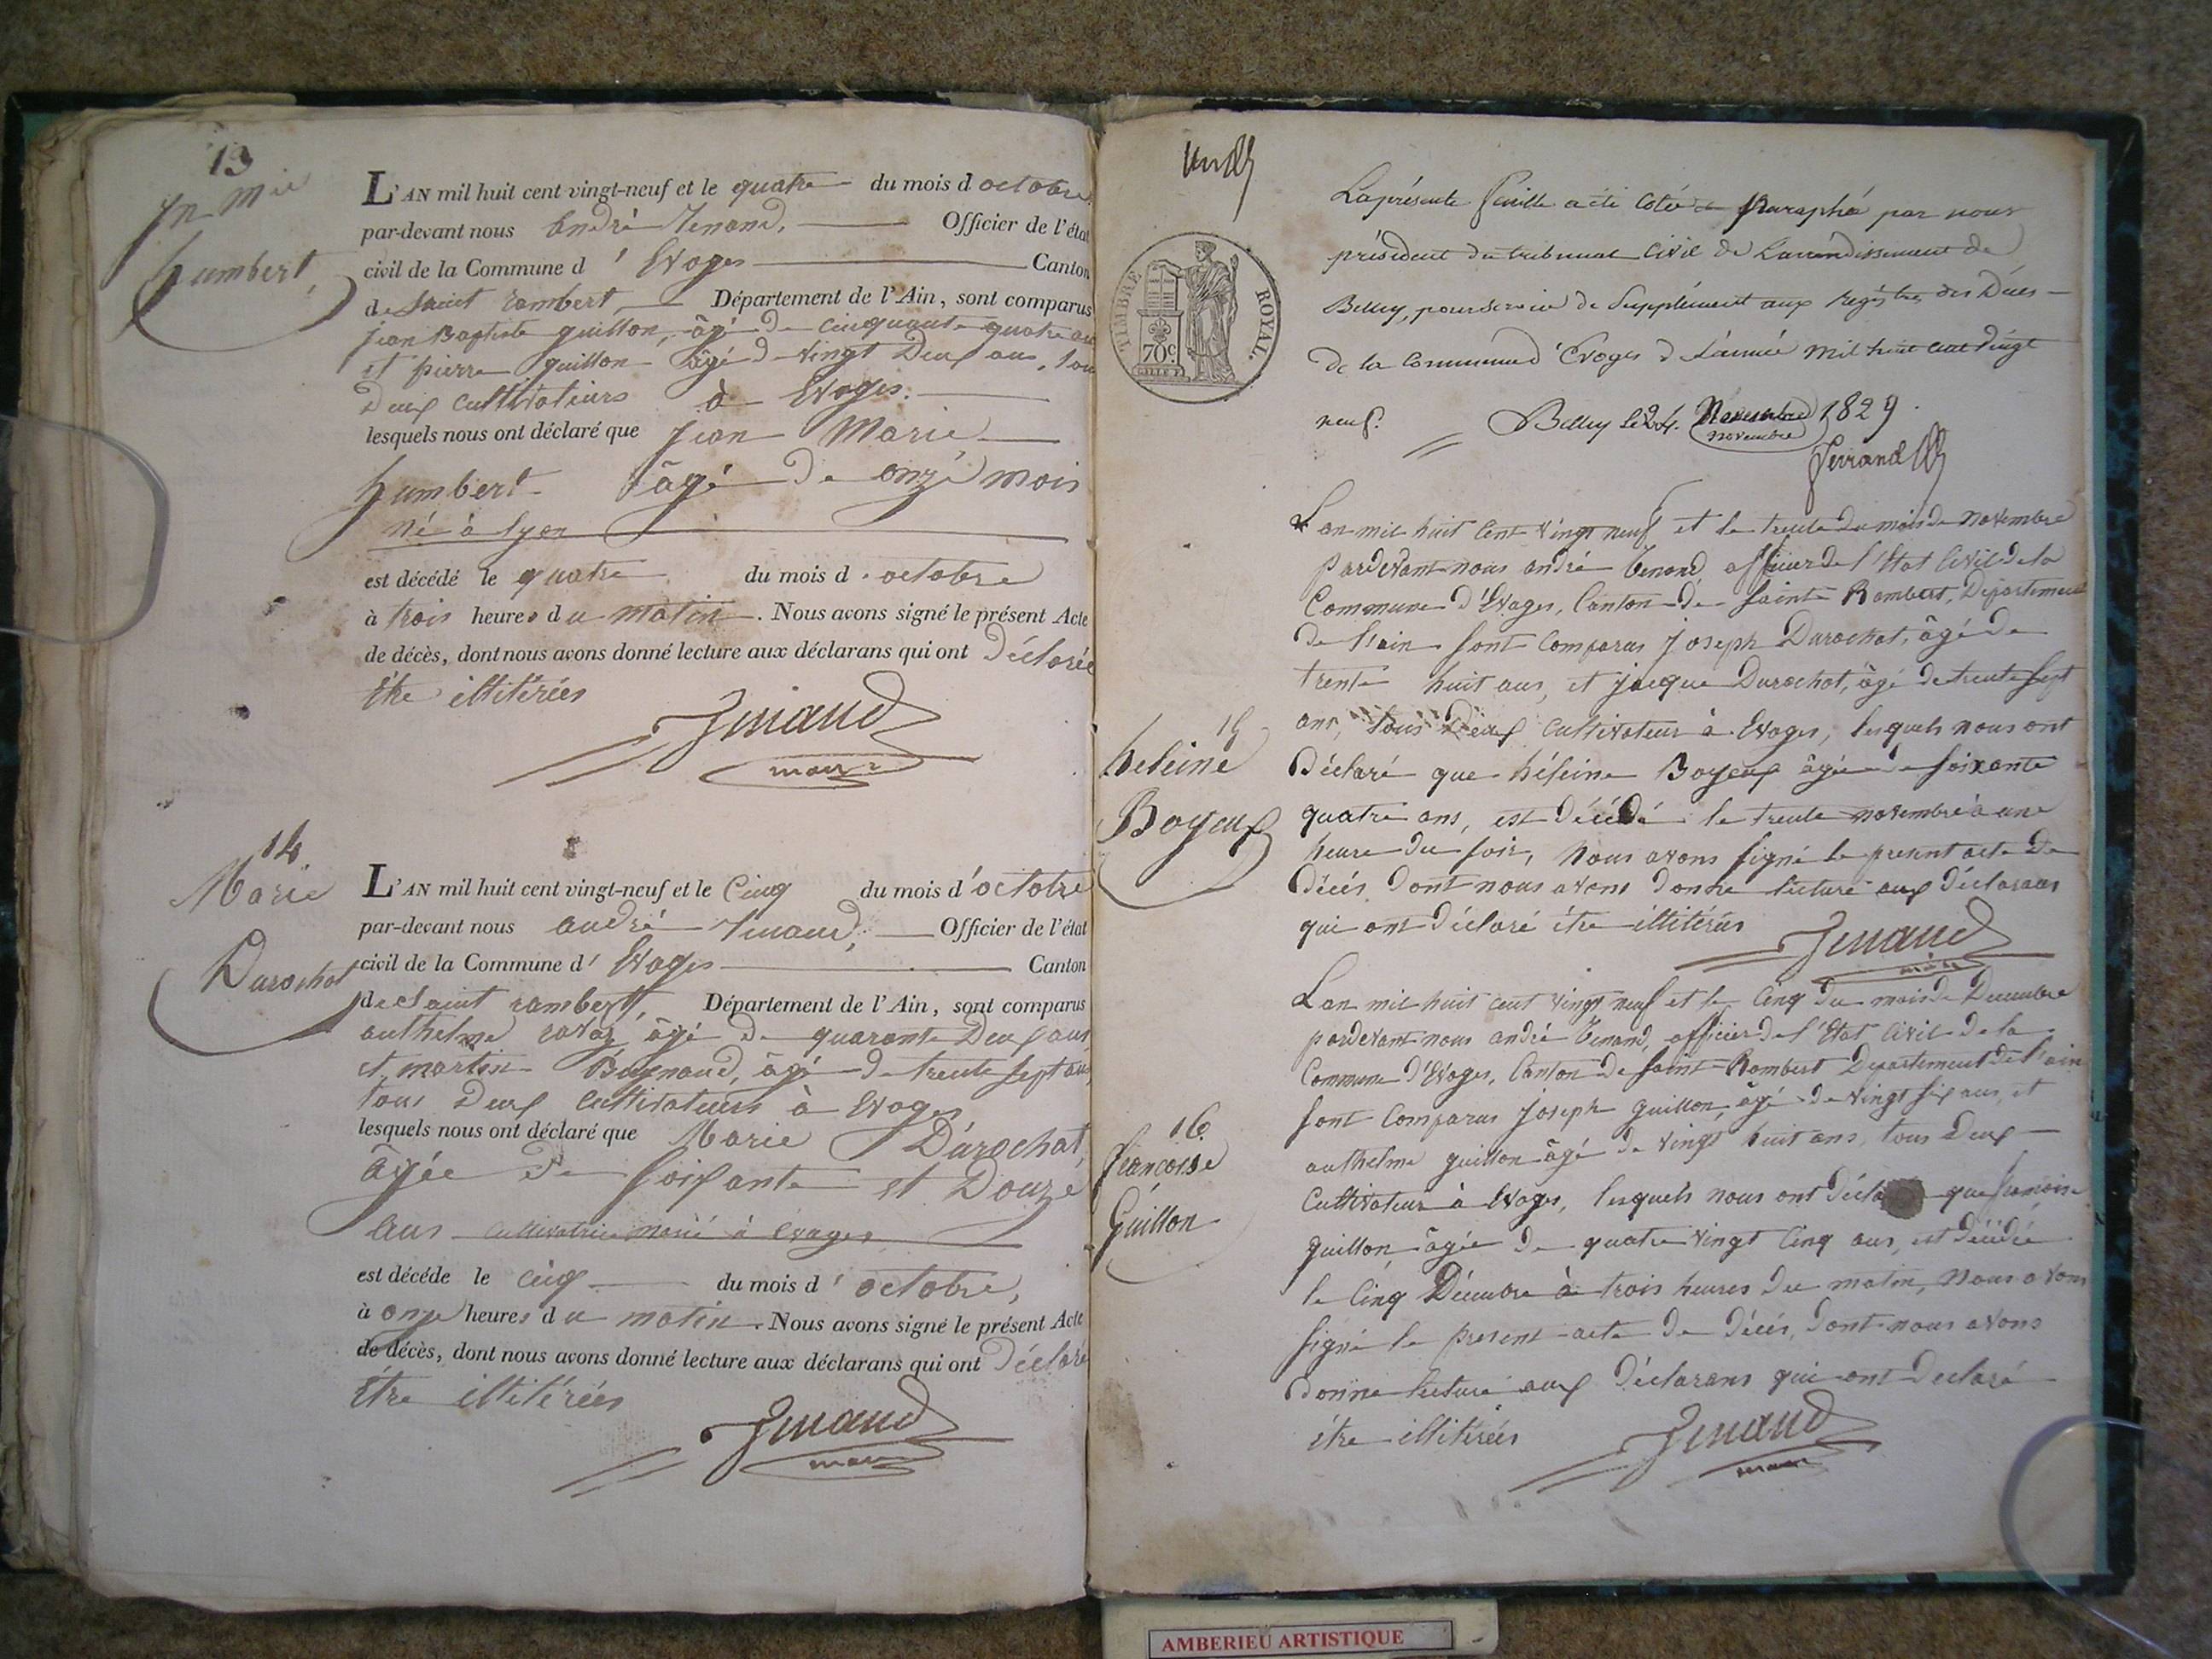 13
Jn Mie
humbert,
L'AN mil huit cent vingt-neuf et le quatre du mois d octobre
par-devant nous andré Tenand, Officier de l'état
civil de la Commune d' Evoges Canton
de saint rambert, Département de l'Ain, sont comparus
jean Baptiste guillon, âgé de cinquante quatre an
et pierre guillon âgé de vingt Deux ans, tou
Deux cultivateurs à Evoges.
lesquels nous ont déclaré que jean Marie
humbert âgé de onze mois
né à lyon
est décédé le quatre du mois d. octobre
à trois heures du matin. Nous avons signé le présent Acte
de décès, dont nous avons donné lecture aux déclarans qui ont Déclarée
être illitérées
Tenand
maire
14.
Marie
Darochat
L'AN mil huit cent vingt-neuf et le Cinq du mois d'octobre
par-devant nous andré Tenand, Officier de l'état
civil de la Commune d' Evoges Canton
de saint rambert, Département de l'Ain, sont comparus
anthelme ravaz âgé de quarante Deux ans
et martin Buynand, âgé de trente sept ans
tous Deux cultivateurs à Evoges
lesquels nous ont déclaré que Marie Darochat,
âgée de soixante et Douze
ans cultivatrice à Evoges
est décéde le cinq du mois d' octobre,
à onze heures du matin. Nous avons signé le présent Acte
de décès, dont nous avons donné lecture aux déclarans qui ont Déclaré
être illitérées
Tenand
maire
TIMBRE ROYAL.
70c.
La présente feuille a été cotée et paraphé par nous
président du tribunal civil de l'arrondissement de
Belley, pour servir de Supplément aux registres des Décès
de la Commune d'Evoges de l'année mil huit cent vingt
neuf. Belley le 24. Novembre 1829.
novembre
Ferrand
L'an mil huit cent vingt neuf et le trente du mois de novembre
pardevant nous andré Tenand officier de l'Etat Civil de la
Commune d'Evoges, Canton de Saint Rambert, Département
de l'ain sont comparus joseph Darochat, âgé de
trente huit ans, et jacque Darochat, âgé de trente sept
ans, tous Deux cultivateur à Evoges, lesquels nous ont
15
heleine
Boyeux
Déclaré que héleine Boyeux âgée de soixante
quatre ans, est décédé le trente novembre à une
heure du soir, nous avons signé le present acte de
Décés dont nous avons donné lecture aux déclarans
qui ont déclaré être illitérées
Tenand
maire
L'an mil huit cent vingt neuf et le Cinq du mois de Decembre
pardevant nous andré Tenand, officier de l'Etat Civil de la
Commune d'Evoges, Canton de Saint Rambert Departement de l'ain
sont comparus joseph guillon, âgé de vingt six ans, et
16.
françoise
Guillon
anthelme guillon âgé de vingt huit ans, tous Deux
cultivateur à Evoges, lesquels nous ont décla que francoise
guillon, âgée de quatre vingt cinq ans, est décédée
le Cinq Décembre à trois heures du matin, Nous avons
signé le present acte de Décés, dont nous avons
donné lecture aux Déclarans qui ont Declaré
être illitérées
Tenand
maire
AMBERIEU ARTISTIQUE